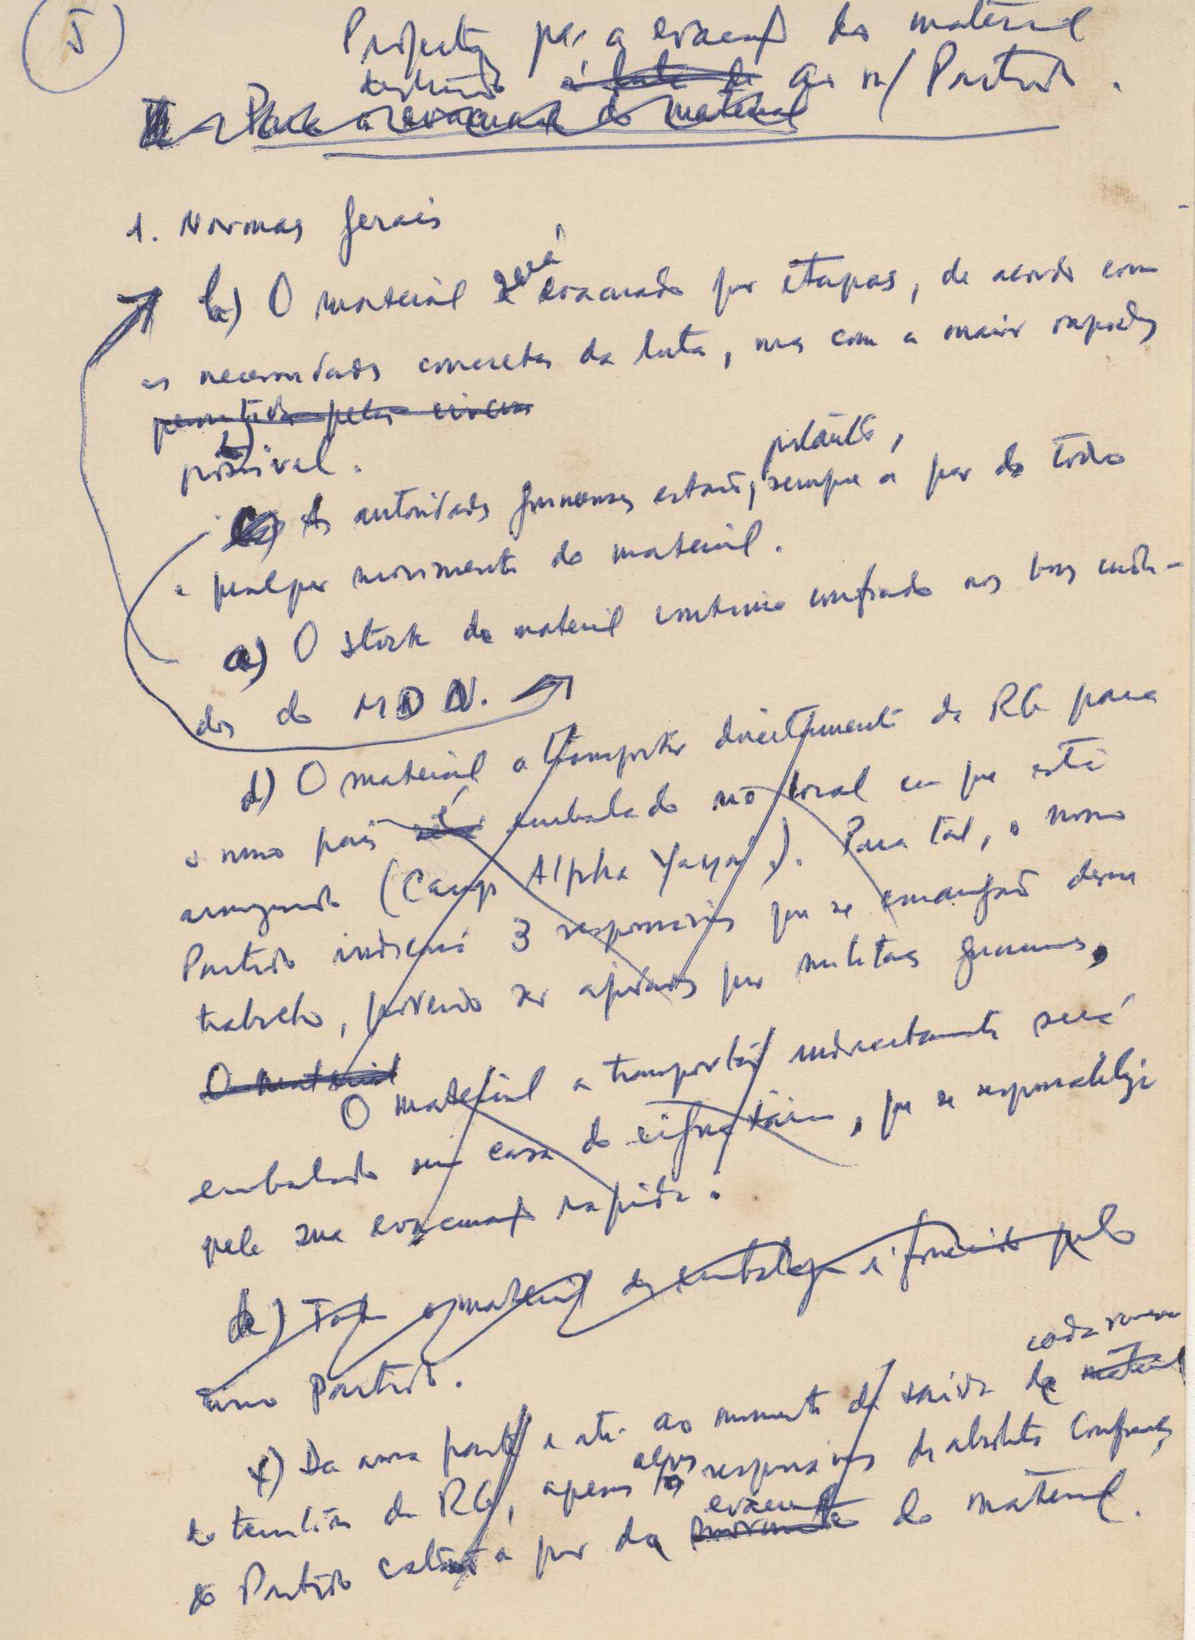 5
Projecto para a evacuação do material
destinado à luta de ao n/ Partido.
II - Para a evacuação do material
1. Normas gerais
b) O material será evacuado por etapas, de acordo com
as necessidades concretas da luta, mas com a maior rapidez
permitida pelas circuns
possível.
portanto,
c) As autoridades guineenses estarão, sempre a par de todo
e qualquer movimento do material.
a) O stock de material continua confiado aos bons cuida-
dos do MDN.
d) O material a transportar directamente da RG para
o nosso país é embalado no local em que está
armazenado (Camp Alpha Yaya). Para tal, o nosso
Partido indicará 3 responsáveis que se encarregarão desse
trabalho, podendo ser ajudados por militares guineenses.
O material
O material a transportar indirectamente será
embalado em casa do, que se responsabiliza
pela sua evacuação rápida.
e) Todo o material de embalagem é fornecido pelo
nosso Partido.
cada remessa
f) Da nossa parte e até ao momento da saída de material
do território da RG, apenas alguns os responsáveis de absoluta confiança
evacuação
do Partido estarão a par da movimento do material.